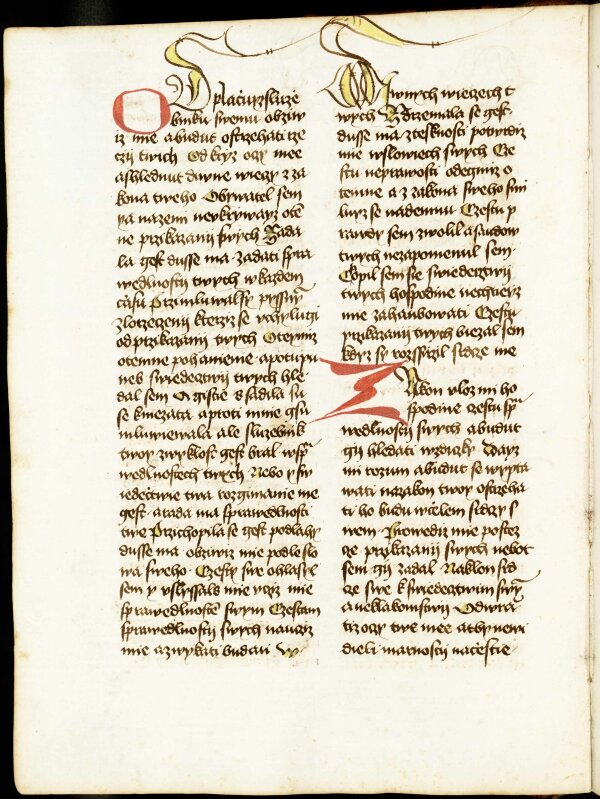 Oplaćuy sluze
buiku swemu obziw
iz mie abudut ostrzehati rze
czij twich Odkryg oczy mee
ashlednut diwne wieczy z za
kona tweho Obywatel sem
ya nazemi neykrywayz ote
ne przikazanij swych Zada
la gest dusse ma zadati spra
wedlnostij twych wkazdem
czasu
zlorzeczenij kterziz se vchyluгij
odprzikazanij twych Oteymiz
otemne pohanienie apotupu
neb swiedectwij twych hle
dal sem Gistie sfadila su
se kniezata aproti mnie gsu
mluwiewala ale sluzebnik
twoy zwyklost gest bral wspra
wedlnostech twych Nebo y sw
iedectwie twa rozgimanie me
gest arada ma sprawedlnosti
twe Przichopila se gest podlahy
dusse ma obziwiz mie podle slo
wa sweho Czesty swe ohlasyl
sem y vslyssals mie vcziz mie
sprawedlnostem swym Czestam
sprawedlnostij swych naucziz
mie azwykati budau w
diwnych wieczech t
wych Zdrzemala se gest
dusse ma ztesknosti potwrdiz
mie wslowiech swych Cze
stu neprawosti odeymiz o
temne a z zakona sweho smi
luyz se nademnu Czestu p
rawdy sem zwolil asaudow
twych nezapomenul sem
Chopil sem se swiedectwij
twych hospodine nechtieyz
mie zahanbowati Czestu
przikazanij twych biezal sem
kdyz sy rozssirzil srdcze me
Zakon vloz mi ho
spodine czestu spra
wedlnostij swych abudut
gij hledati wzdiczky Dayz
mi rozum abudut se wypta
wati nazakon twoy ostrzeha
ti ho budu wczelem srdczy s
wem Prowediz mie postez
ce przikazanij swych nebot
sem gij zadal Naklon srd
ce swe k swiedectwim swym
a neklakomstwij Odwra
tiz oczy twe mee atbynewi
dieli marnostij naczestie